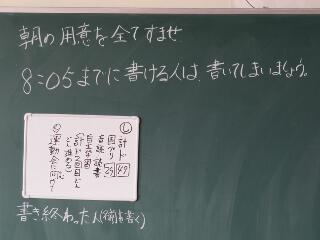 朝の用意を全てすませ
8:05までに書ける人は、書いてしまいましょう。
し
計ド 47
国プリ 24
音読 読書
自主学習
(計ド2回目どん
どん進める)
運動会に向けて
書き終わった人